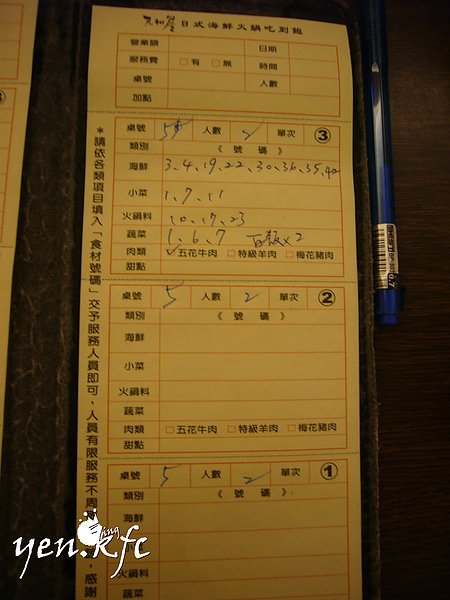 元和屋日式海鮮火鍋吃到飽
營業額 日期
服務費 □有 □無 時間
桌號 人數
加點
桌號 5 人數 2 單次 ③
類別 《 號 碼 》
海鮮 3、4、19、22、30、36、35、42
小菜 1、7、11
火鍋料 10、17、23
蔬菜 1、6、7 百頁x2
肉類 ✓五花牛肉 □特級羊肉 □梅花豬肉
甜點
桌號 5 人數 2 單次 ②
類別 《 號 碼 》
海鮮
小菜
火鍋料
蔬菜
肉類 □五花牛肉 □特級羊肉 □梅花豬肉
甜點
桌號 5 人數 2 單次 ①
類別 《 號 碼 》
海鮮
火鍋料
蔬菜
*請依各類項目填入「食材號碼」交予服務人員即可，人員有限服務不周
，感謝
yen.kfc